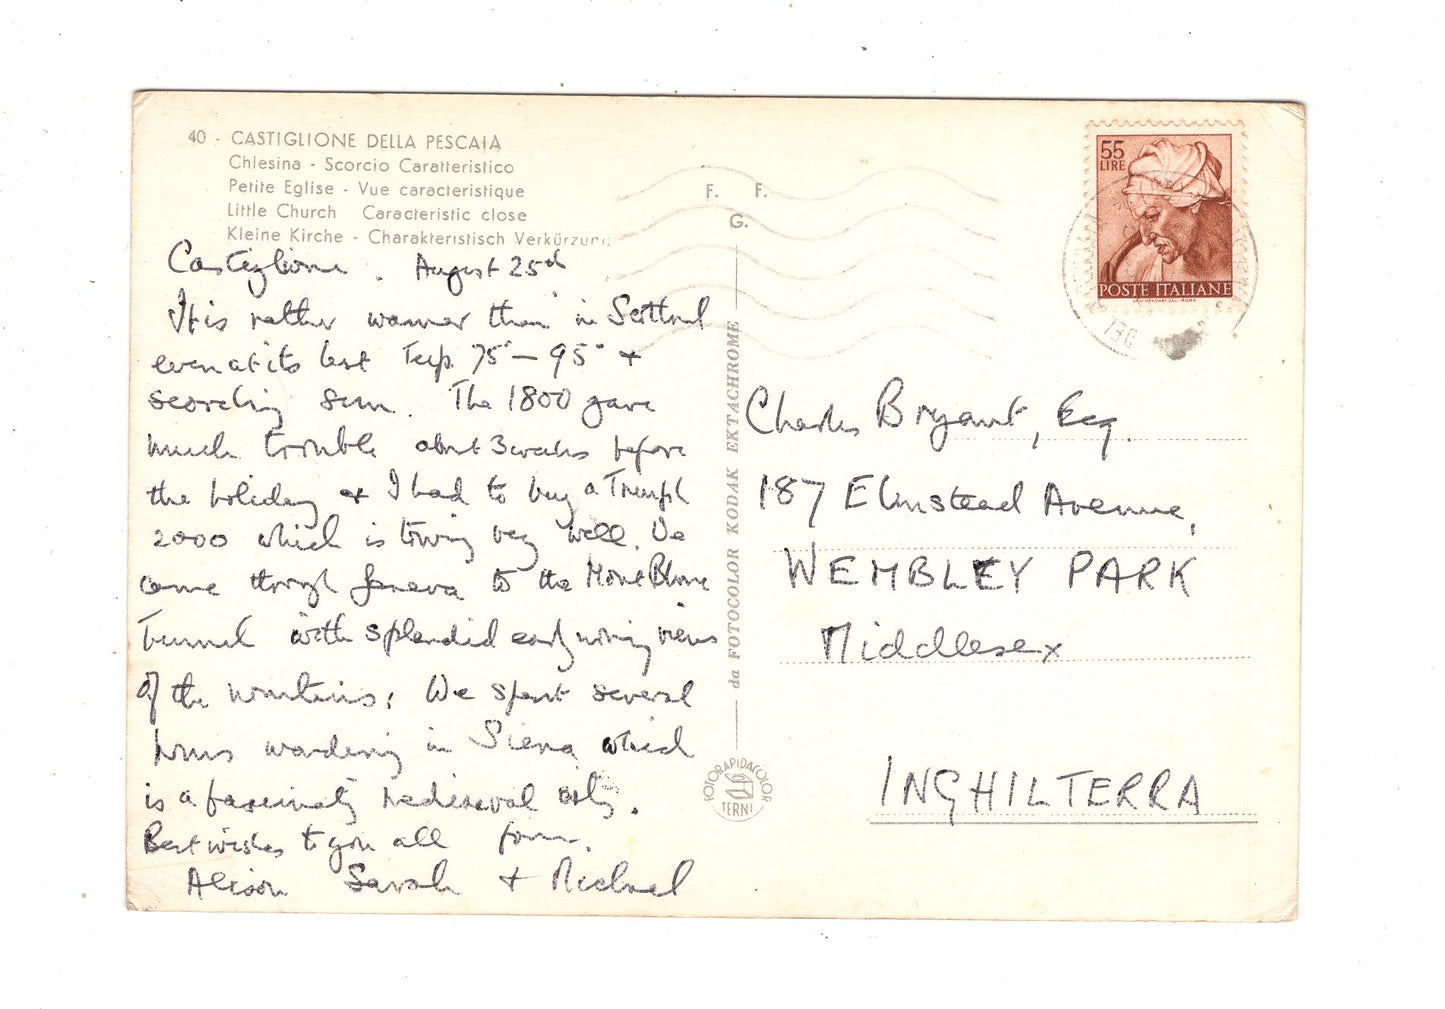 40 - CASTIGLIONE DELLA PESCAIA
Chiesina - Scorcio Caratteristico
Petite Eglise - Vue caracteristique
Little Church Caracteristic close
Kleine Kirche - Charakteristisch Verkürzung
F. F.
G.
55
LIRE
POSTE ITALIANE
Castiglione. August 25th
It is rather warmer than in Scotland
even at its best Temp. 75° - 95° +
scorching sun. The 1800 gave
much trouble about 3 weeks before
the holiday & I had to buy a Triumph
2000 which is towing very well. We
came through Geneva to the Mont Blanc
Tunnel with splendid early morning views
of the mountains. We spent several
hours wandering in Siena which
is a fascinating mediaeval city.
Best wishes to you all from.
Alison Sarah + Michael
da FOTOCOLOR KODAK EKTACHROME
FOTORAPIDACOLOR
TERNI
Charles Bryant, Esq.
187 Elmstead Avenue,
WEMBLEY PARK
Middlesex
INGHILTERRA